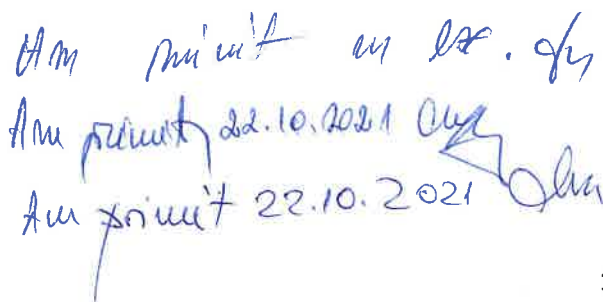 Am primit un ex.
Am primit 22.10.2021
Am primit 22.10.2021